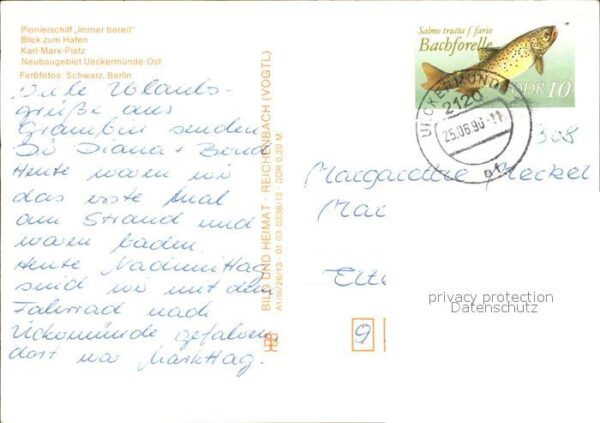 Pionierschiff „Immer bereit"
Blick zum Hafen
Karl-Marx-Platz
Neubaugebiet Ueckermünde-Ost
Farbfotos: Schwarz, Berlin
Viele Urlaubs-
grüße aus
Grambin senden
Diana + Bernd
Heute waren wir
das erste Mal
am Strand und
waren baden.
Heute Nachmittag
sind wir mit dem
Fahrrad nach
Ückemünde gefahren
dort war Markttag.
BILD UND HEIMAT · REICHENBACH (VOGTL)
A1/III/26/13 01 03 0338/13 · DDR 0,20 M
Salmo trutta f. fario
Bachforelle
DDR 10
UECKERMÜNDE 1
2120
25.06.90-11
308
Margarethe Meckel
Mar
Elte
privacy protection
Datenschutz
9